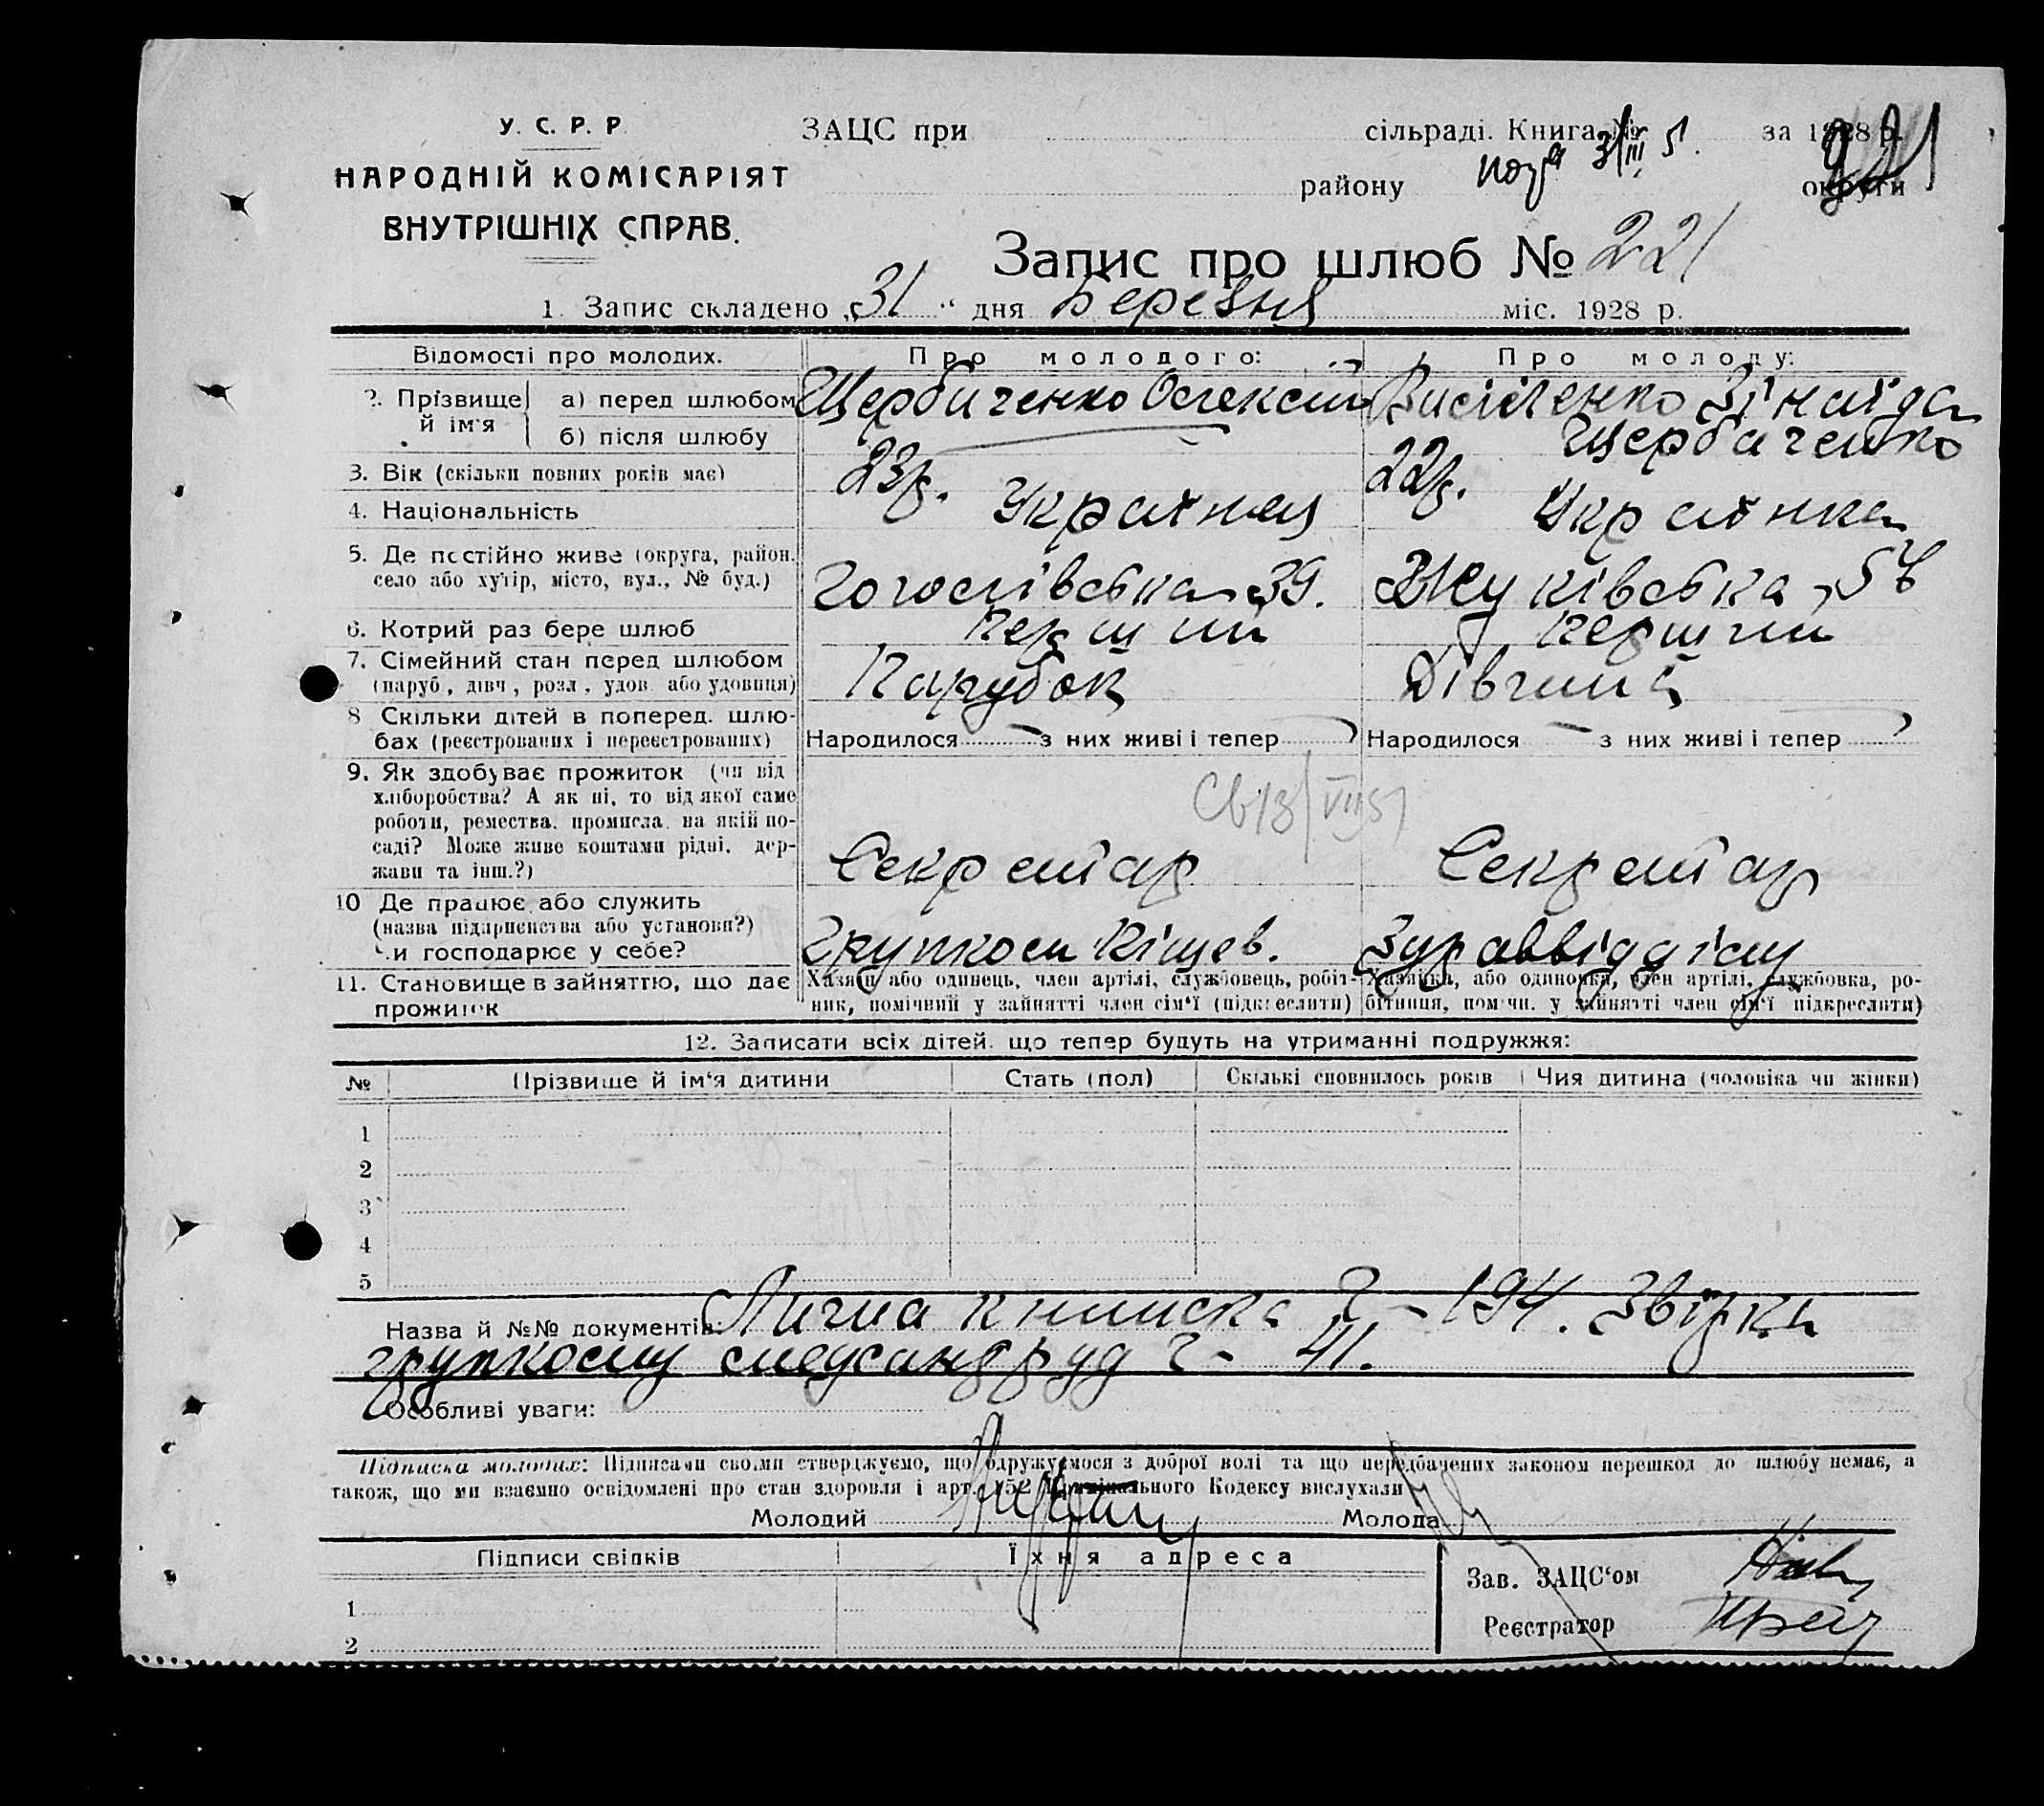 У. С. Р. Р.
НАРОДНІЙ КОМІСАРІЯТ
ВНУТРІШНІХ СПРАВ.
ЗАЦС при сільраді. Книга № за 1928 р.
району округи
Запис про шлюб № 221
1. Запис складено „31“ дня Березня міс. 1928 р.
Відомості про молодих. Про молодого: Про молоду:
2. Прізвище й ім'я а) перед шлюбом Щербаченко Олексій Зінаїда
б) після шлюбу Щербаченко
3. Вік (скільки повних років має) 23р. 22р.
4. Національність Українец Українка
5. Де постійно живе (округа, район,
село або хутір, місто, вул., № буд.) Гоголівська 39. Жуківська
6. Котрий раз бере шлюб Перший Перший
7. Сімейний стан перед шлюбом
(паруб., дівч., розл., удов. або удовиця) Парубок Дівчина
8 Скільки дітей в поперед. шлю-
бах (реєстрованих і нереєстрованих) Народилося з них живі і тепер Народилося з них живі і тепер
9. Як здобуває прожиток (чи від
хліборобства? А як ні, то від якої саме
роботи, ремества, промисла, на якій по-
саді? Може живе коштами рідні, дер-
жави та інш.?) Секретар Секретар
10 Де працює або служить
(назва підприємства або установи?)
Чи господарює у себе? Групком Здраввідділу
11. Становище в зайняттю, що дає
прожиток
Хазяїн або одинець, член артілі, службовець, робіт-
ник, помічний у зайнятті член сім'ї (підкреслити)
Хазяйка, або одиночка, член артілі, службовка, ро-
бітниця, помічн. у зайнятті член сім'ї підкреслити)
12. Записати всіх дітей, що тепер будуть на утриманні подружжя:
№ Прізвище й ім'я дитини Стать (пол) Скількі сповнилось років Чия дитина (чоловіка чи жінки)
1
2
3
4
5
Назва й №№ документів: Лична книжка ч - 194. Звірка
групкому медсанпруд ч - 41.
Особливі уваги:
Підписка молодих: Підписами своїми стверджуємо, що одружуємося з доброї волі та що передбачених законом перешкод до шлюбу немає, а
також, що ми взаємно освідомлені про стан здоровля і арт. 152 Кримінального Кодексу вислухали
Молодий Молода
Підписи свідків Їхня адреса
1
2
Зав. ЗАЦС'ом
Реєстратор